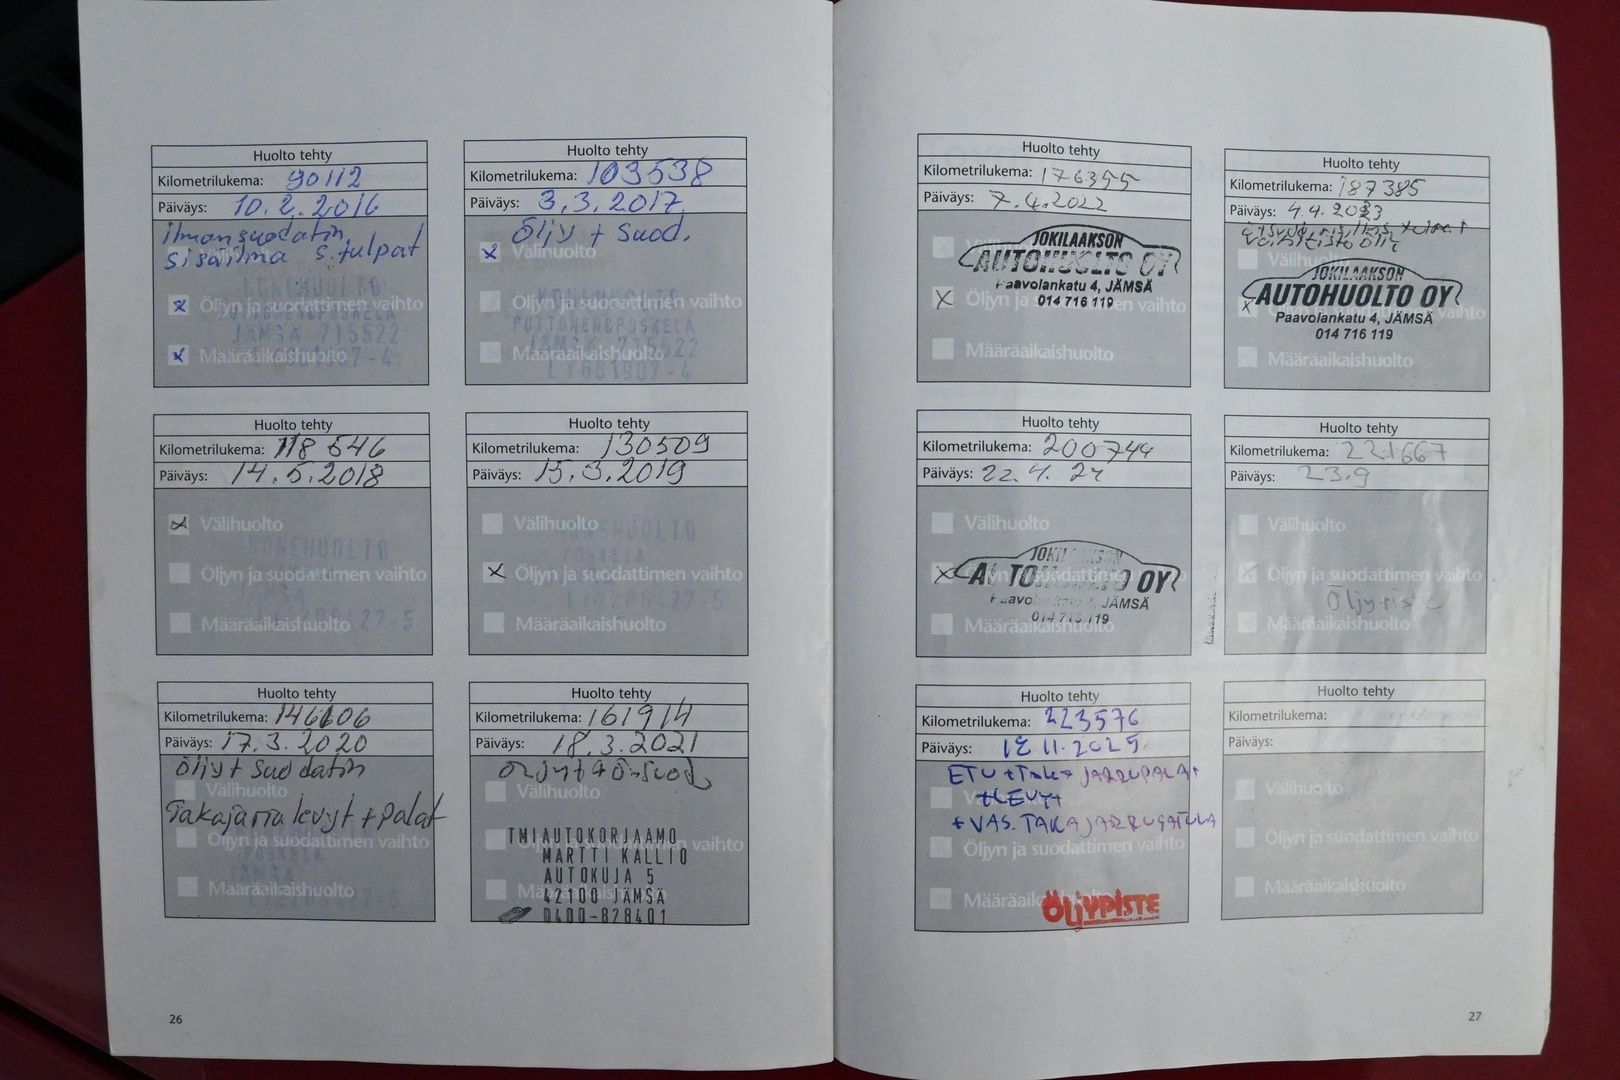 Huolto tehty
Kilometrilukema: 90112
Päiväys: 10.2.2016
ilmansuodatin
sisäilma s.tulpat
Öljyn ja suodattimen vaihto
JÄMSÄ 715522
Määräaikaishuolto
Huolto tehty
Kilometrilukema: 103538
Päiväys: 3.3.2017
Öljy + suod.
Välihuolto
Öljyn ja suodattimen vaihto
PUTTONEN&POSKELA
JÄMSÄ 715522
Määräaikaishuolto
LY661907-4
Huolto tehty
Kilometrilukema: 118546
Päiväys: 14.5.2018
Välihuolto
KONEHUOLTO
Öljyn ja suodattimen vaihto
Määräaikaishuolto
Huolto tehty
Kilometrilukema: 130509
Päiväys: 15.3.2019
Välihuolto
KONEHUOLTO
POSKELA
Öljyn ja suodattimen vaihto
Määräaikaishuolto
Huolto tehty
Kilometrilukema: 146106
Päiväys: 17.3.2020
Öljy + suodatin
Välihuolto
Takajarru levyt + palat
Öljyn ja suodattimen vaihto
POSKELA
Määräaikaishuolto
Huolto tehty
Kilometrilukema: 161914
Päiväys: 18.3.2021
Välihuolto
TMI AUTOKORJAAMO
Öljyn ja suodattimen vaihto
MARTTI KALLIO
AUTOKUJA 5
42100 JÄMSÄ
Määräaikaishuolto
0400-828401
26
Huolto tehty
Kilometrilukema: 176355
Päiväys: 7.4.2022
JOKILAAKSON
AUTOHUOLTO OY
Paavolankatu 4, JÄMSÄ
014 716 119
Öljyn ja suodattimen vaihto
Määräaikaishuolto
Huolto tehty
Kilometrilukema: 187385
Päiväys: 4.4.2023
Välihuolto
JOKILAAKSON
AUTOHUOLTO OY
Paavolankatu 4, JÄMSÄ
014 716 119
Määräaikaishuolto
Huolto tehty
Kilometrilukema: 200744
Päiväys: 22.4.24
Välihuolto
JOKILAAKSON
AUTOHUOLTO OY
Öljyn ja suodattimen vaihto
Paavolankatu 4, JÄMSÄ
014 716 119
Määräaikaishuolto
Huolto tehty
Kilometrilukema: 221667
Päiväys: 23.9
Välihuolto
Öljyn ja suodattimen vaihto
Öljypiste
Määräaikaishuolto
Huolto tehty
Kilometrilukema: 223576
Päiväys: 12.11.2025
ETU + TAKA JARRUPALAT
+LEVYT
Välihuolto
+ VAS. TAKAJARRUSATULA
Öljyn ja suodattimen vaihto
Määräaikaishuolto
ÖLJYPISTE
Huolto tehty
Kilometrilukema:
Päiväys:
Välihuolto
Öljyn ja suodattimen vaihto
Määräaikaishuolto
27